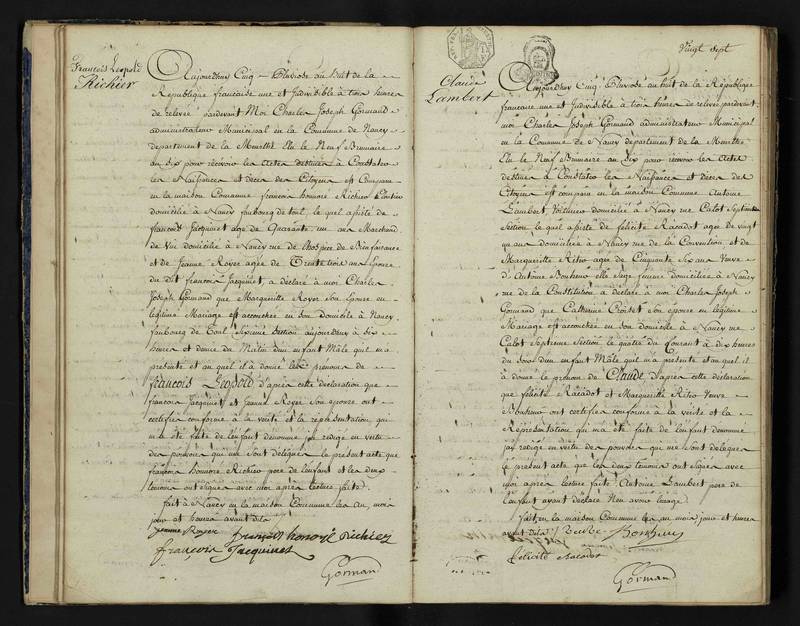 François Leopold
Richier
Aujourdhuy Cinq Pluviose an huit de la
Republique francaise une et Indivisible à trois heures
de relevée pardevant Moi Charles Joseph Gormand
administrateur Municipal en la Commune de Nancy
departement de la Meurthe Elu le Neuf Brumaire
an six pour recevoir les actes destinés à Constater
les Naissances et deces des Citoyens est Comparu
en la maison Commune françois honoré Richier
domicilié à Nancy faubourg de toul, le quel assisté de
françois Jacquinet agé de Quarante un ans Marchand
de domicilié à Nancy rue de hospice de Bienfaisance
et de Jeanne Royer agée de Trente trois ans Epouse
du dit françois Jacquinet, a déclaré à moi Charles
Joseph Gormand que Marguerite Royer Son Epouse en
legitime Mariage est accouchée en son domicile à Nancy
faubourg de Toul Sixieme Section aujourdhuy à six
heures et demie du Matin d'un enfant Mâle quil m'a
présenté et au quel il a donné les prénoms de
François Léopold d'après cette déclaration que
françois Jacquinet et Jeanne Royer son epouse ont
certifiée conforme à la verité et la représentation qui
m'a été faite de l'enfant denommé j'ai redigé en vertu
des pouvoirs qui me sont délégués le présent acte que
françois honoré Richier pere de l'enfant et les deux
temoins ont signés avec moi après lecture faite.
fait à Nancy en la maison Commune les an, mois
jour et heures avant dits
Jeanne Royer françois honoré Richier
françois Jacquinet
Gormand
Vingt Sept
Claude
Lambert
Aujourdhuy Cinq Pluviose an huit de la République
francaise une et Indivisible à trois heures de relevée pardevant
moi Charles Joseph Gormand administrateur Municipal
en la Commune de Nancy departement de la Meurthe
Elu le Neuf Brumaire an six pour recevoir les actes
destinés à Constater les Naissances et décès des
Citoyens est comparu en la maison Commune Antoine
Lambert, Voiturier domicilié à Nancy rue Calot Septieme
Section le quel assisté de felicité Racadot agée de vingt
un ans domiciliée à Nancy rue de la Convention et de
Marguerite Rétro agée de Cinquante Six ans Veuve
d'Antoine Bonhomme elle Sage femme domiciliée à Nancy
rue de la Constitution a déclaré à moi Charles Joseph
Gormand que Catherine Son épouse en légitime
Mariage est accouchée en son domicile à Nancy rue
Calot Septieme Section le quatre du Courant à dix heures
du soir d'un enfant Mâle quil m'a présenté et au quel il
a donné le prénom de Claude d'après cette déclaration
que félicité Racadot et Marguerite Rétro Veuve
ont certifiée conforme à la verité et la
Réprésentation qui m'a été faite de l'enfant denommé
j'ai redigé en vertu des pouvoirs qui me sont délégués
le présent acte que les deux temoins ont signés avec
moi après lecture faite Antoine Lambert pere de
l'enfant ayant déclaré n'en avoir l'usage
fait en la maison Commune les an mois jour et heures
avant dits
félicité Racadot
Gormand